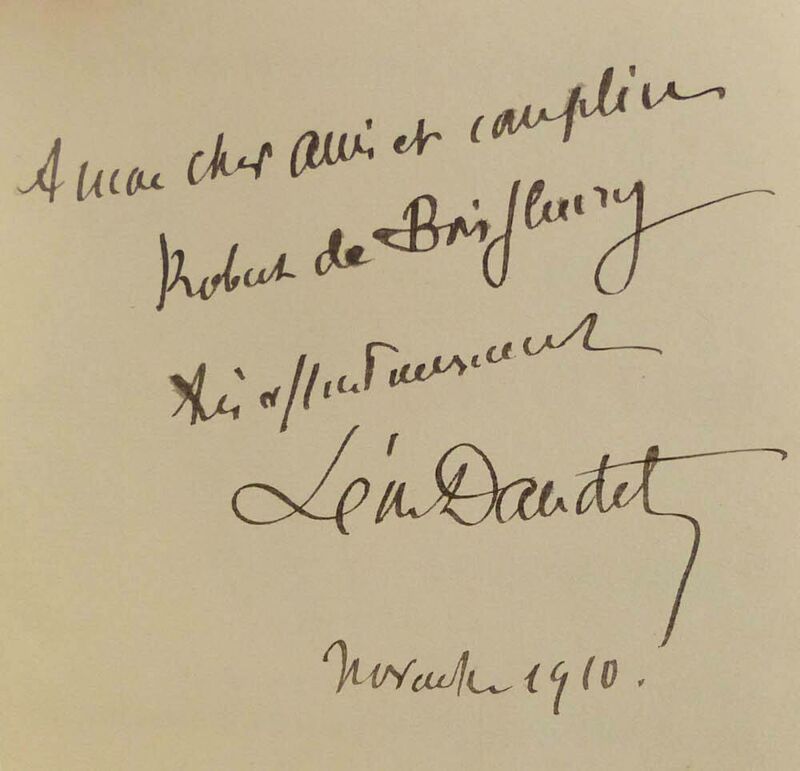 A mon cher ami et complice
Robert de Boisfleury
très affectueusement
Léon Daudet
Novembre 1910.